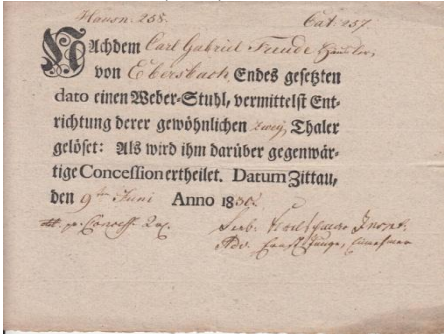 Hausn. 258. Cat. 257.
Nachdem Carl Gabriel Freude Häusler,
von Ebersbach, Endes gesetzten
dato einen Weber-Stuhl, vermittelst Ent-
richtung derer gewöhnlichen zwey Thaler
gelöset: Als wird ihm darüber gegenwär-
tige Concession ertheilet. Datum Zittau,
den 9ten Juni Anno 18
Adv. Ernst